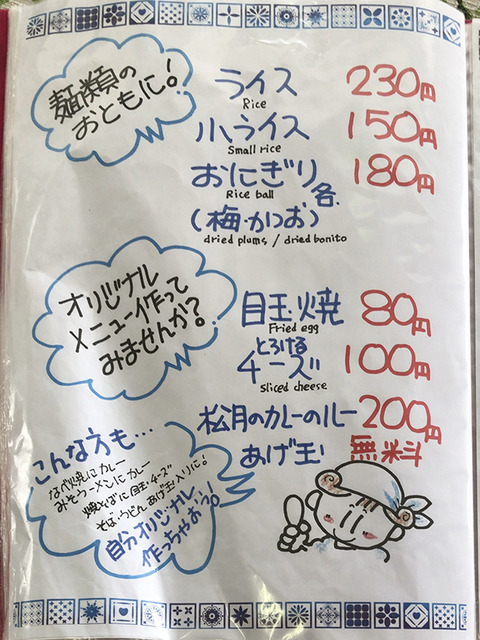 麺類の
おともに!
ライス 230円
Rice
小ライス 150円
Small rice
おにぎり 各. 180円
Rice ball
(梅・かつお)
dried plums / dried bonito
オリジナル
メニュー作って
みませんか?
目玉焼 80円
Fried egg
とろける
チーズ 100円
Sliced cheese
松月のカレーのルー 200円
あげ玉 無料
こんな方も…
なべ焼にカレー
みそラーメンにカレー
焼そばに目玉・チーズ
そば・うどんあげ玉入りに!
自分オリジナル
作っちゃおう!